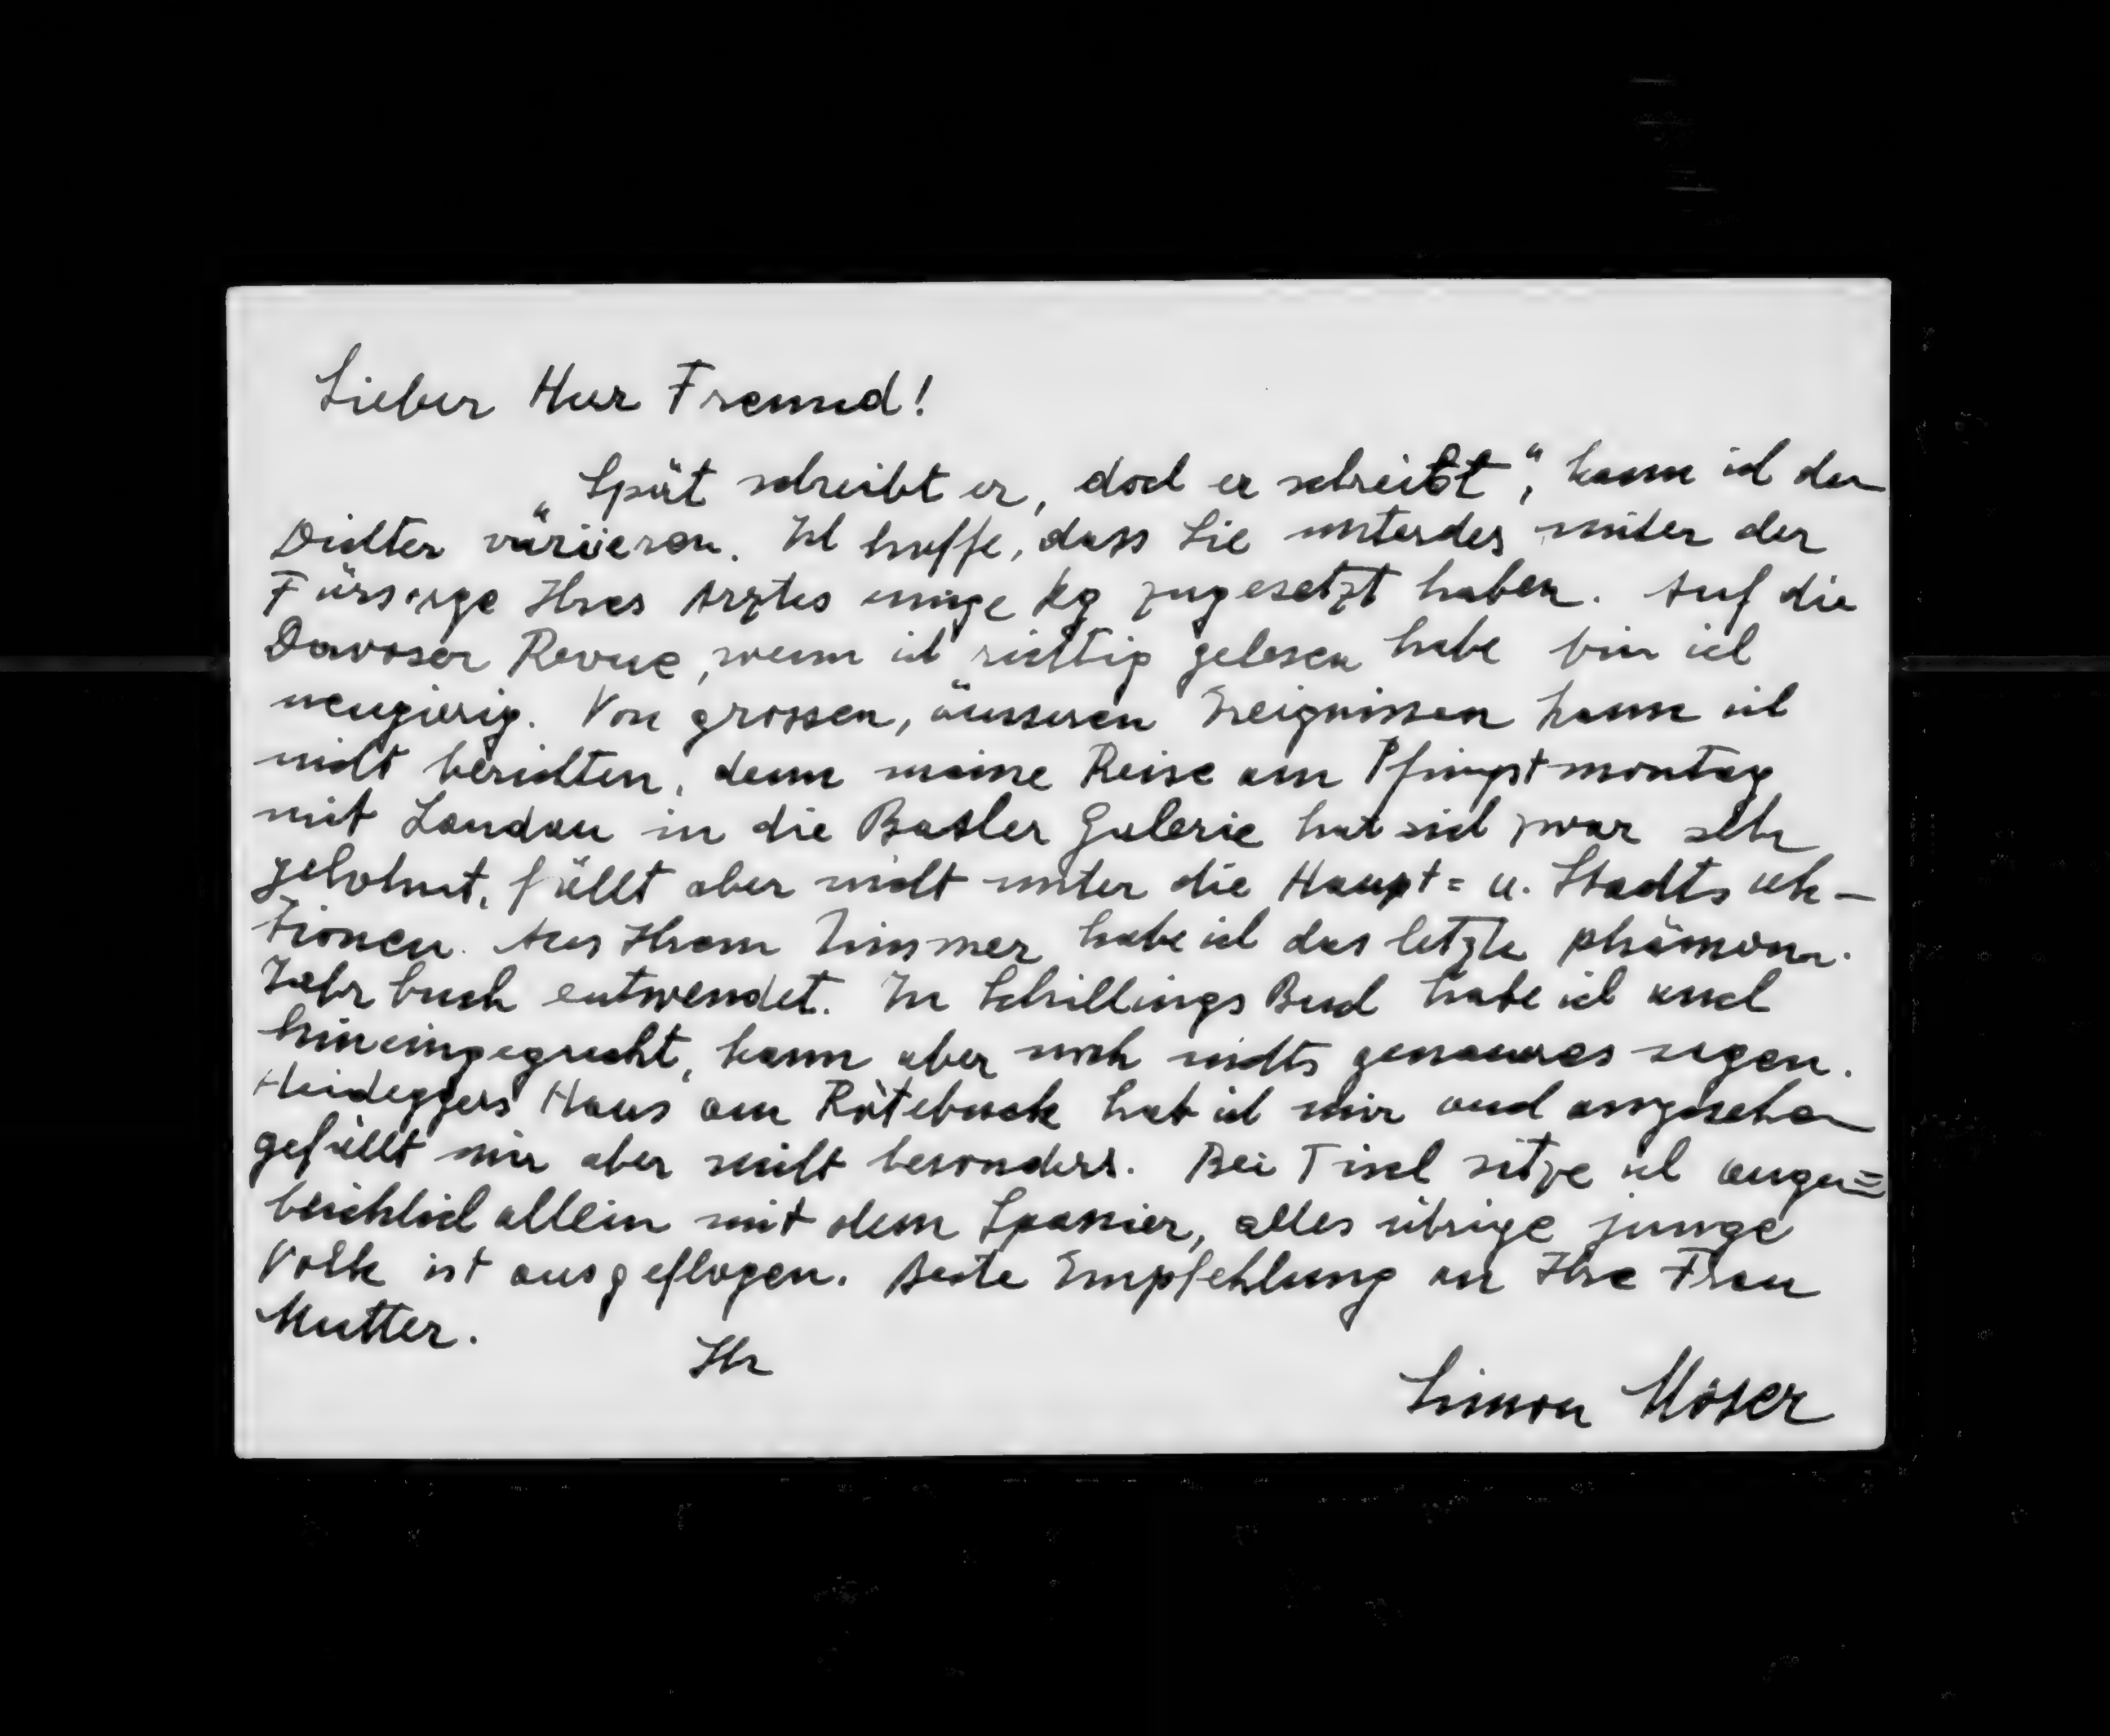 Lieber Herr Freund!
„Spät schreibt er, doch er schreibt", kann ich den
Dichter variieren. Ich hoffe, dass Sie unterdes unter der
Fürsorge Ihres Arztes einige kg zugesetzt haben. Auf die
Davoser Revue, wenn ich richtig gelesen habe bin ich
neugierig. Von grossen, äusseren Ereignissen kann ich
nicht berichten, denn meine Reise am Pfingstmontag
mit Landau in die Basler Galerie hat sich zwar sehr
gelohnt, fällt aber nicht unter die Haupt= u. Staatsak-
tionen. Aus Ihrem Zimmer habe ich das letzte phänomen.
Jahrbuch entwendet. In Schillings Buch habe ich auch
hineingeguckt, kann aber noch nichts genaueres sagen.
Heideggers Haus am Rötebuck hab ich mir auch angesehen
gefällt mir aber nicht besonders. Bei Tisch sitze ich augen=
blicklich allein mit dem Spanier, alles übrige junge
Volk ist ausgeflogen. Beste Empfehlung an Ihre Frau
Mutter.
Ihr
Simon Moser